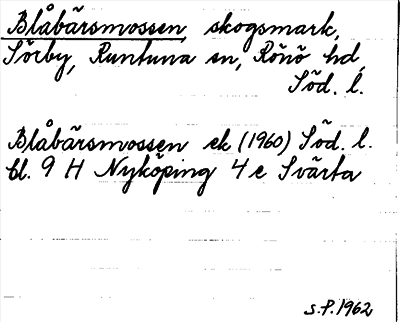 Blåbärsmossen, skogsmark,
Sörby, Runtuna sn, Rönö hd,
Söd. l.
Blåbärsmossen ek (1960) Söd. l.
bl. 9 H Nyköping 4 e Svärta
S.P. 1962